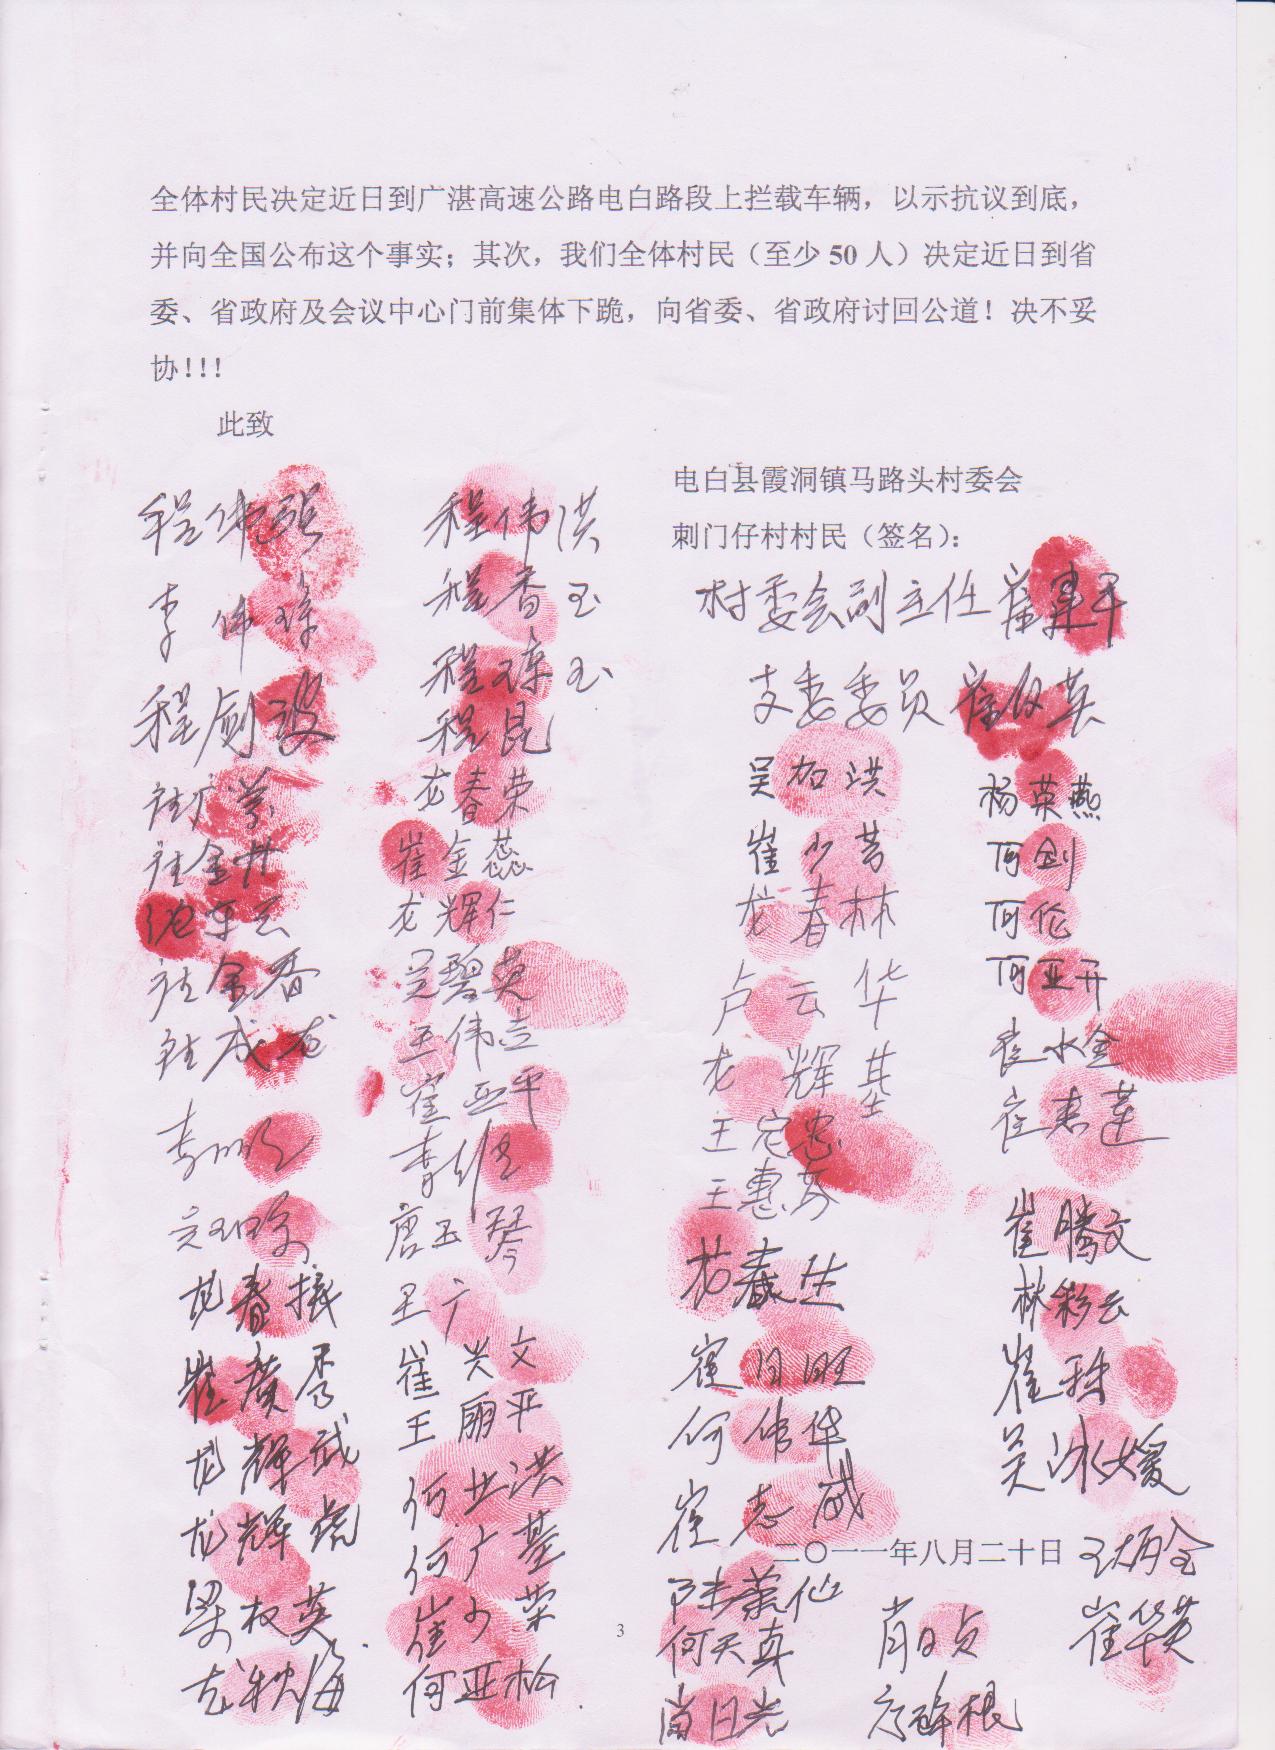 全体村民决定近日到广湛高速公路电白路段上拦载车辆，以示抗议到底，
并向全国公布这个事实；其次，我们全体村民（至少 50 人）决定近日到省
委、省政府及会议中心门前集体下跪，向省委、省政府讨回公道！决不妥
协!!!
此致
电白县霞洞镇马路头村委会
刺门仔村村民（签名）：
村委会副主任 崔建平
支委委员 崔仪英
程伟强
程伟洪
李伟
程香玉
程剑波
程琼玉
程昆
龙春荣
吴加洪
杨英燕
崔金蕊
崔少芳
何剑
龙辉仁
龙春林
何伦
金香
吴碧英
卢云华
何亚开
成龙
王伟立
龙辉基
崔水金
崔亚平
王定忠
崔惠莲
李雄
王惠芬
唐玉琴
崔腾文
龙春
王广
龙春生
林彩云
崔广
崔兴文
崔日旺
崔
龙辉武
王丽亚
何伟华
吴冰媛
龙辉虎
何业洪
崔志成
何广基
二〇一一年八月二十日
王炳金
梁权英
崔少荣
陆萧仙
何天真
肖日贞
崔华英
龙秋海
何亚松
肖日光
根
3